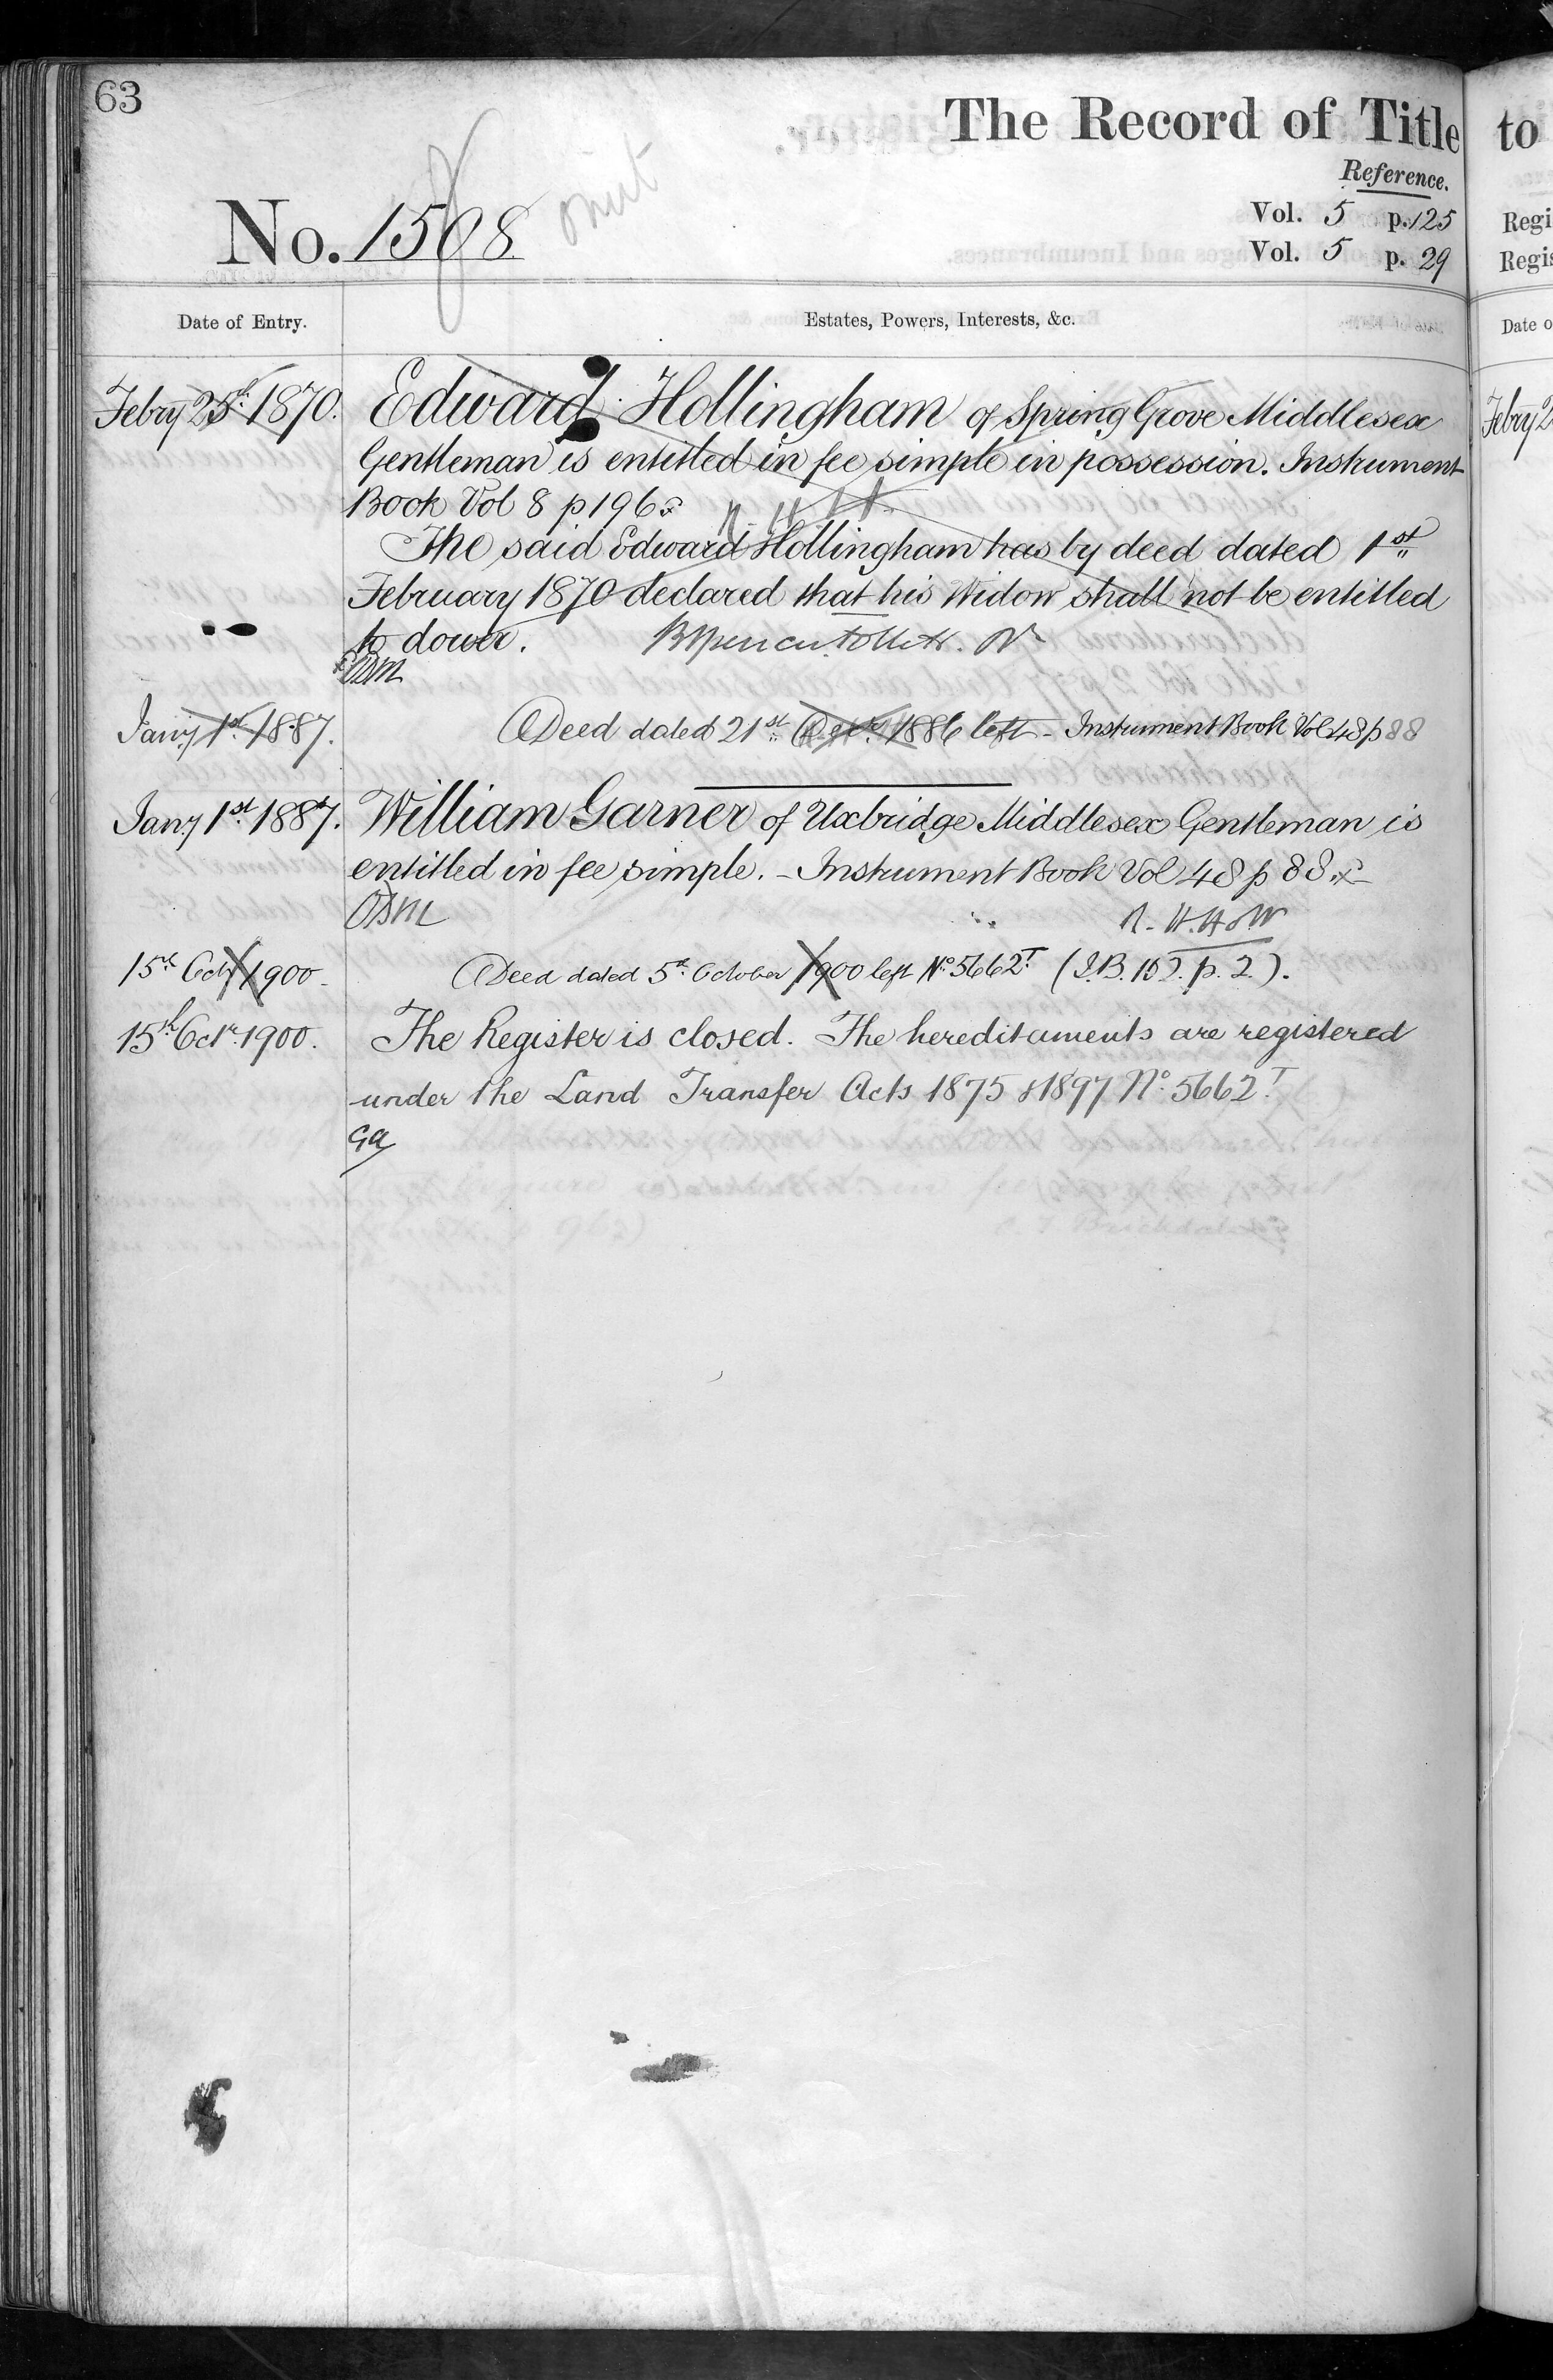 63
The Record of Title
Reference.
omit
No. 1508
Vol. 5 p. 125
Vol. 5 p. 29
Date of Entry.
Estates, Powers, Interests, &c.
Febry 25th 1870.
Edward Hollingham of Spring Grove Middlesex
Gentleman is entitled in fee simple in possession. Instrument
Book Vol 8 p 196
The said Edward Hollingham has by deed dated 1st
February 1870 declared that his Widow shall not be entitled
to dower.
Jany 1st 1887.
Deed dated 21st Decr. 1886 left - Instrument Book Vol 48 p 88
Jany 1st 1887.
William Garner of Uxbridge Middlesex Gentleman is
entitled in fee simple. - Instrument Book Vol 48 p 88
15th Octr 1900
Deed dated 5th October 1900 left No 5662T. (I.B. 10 T. p. 2.).
15th Octr. 1900.
The Register is closed. The hereditaments are registered
under the Land Transfer Acts 1875 & 1897 No 5662T.
GA
to
Regi
Regis
Date o
Febry 2